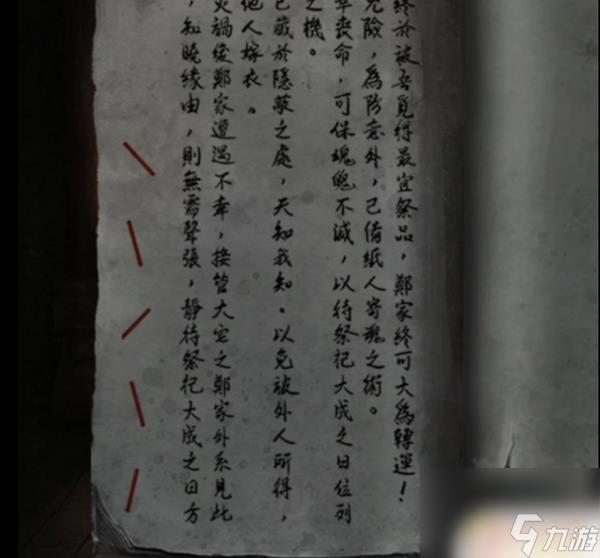 終於被吾覓得最宜祭品，鄭家終可大為轉運！
危險，為防意外，已備紙人寄魂之術。
年喪命，可保魂魄不滅，以待祭祀大成之日位列
之機。
已藏於隱蔽之處，天知我知。以免被外人所得，
他人嫁衣。
災禍後鄭家遭遇不幸，接管大宅之鄭家外系見此
，知曉緣由，則無需聲張，靜待祭祀大成之日方
九游